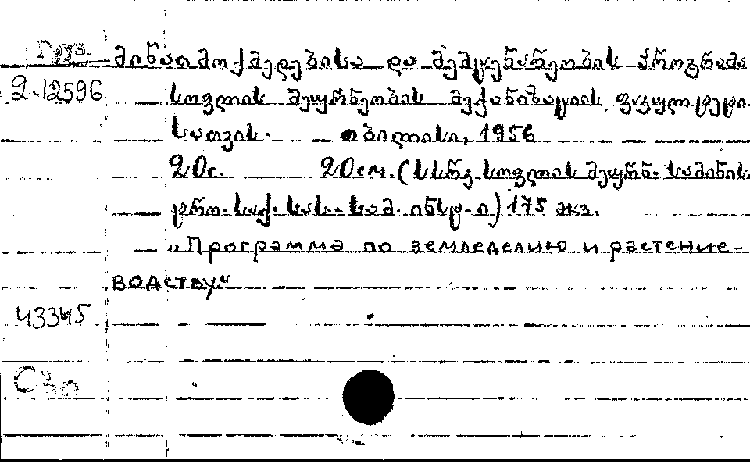 Груз. მიწათმოქმედებისა და მემცენარეობის პროგრამა
2-12596 სოფლის მეურნეობის მექანიზაციის ფაკულტეტი-
სათვის. თბილისი, 1956
20с. 20см. (სსრკ. სოფლის მეურნ. სამინის-
ტრო. საქ. სას.-სამ. ინსტ-ი) 175 экз.
„Программа по земледелию и растение-
водству“
43345